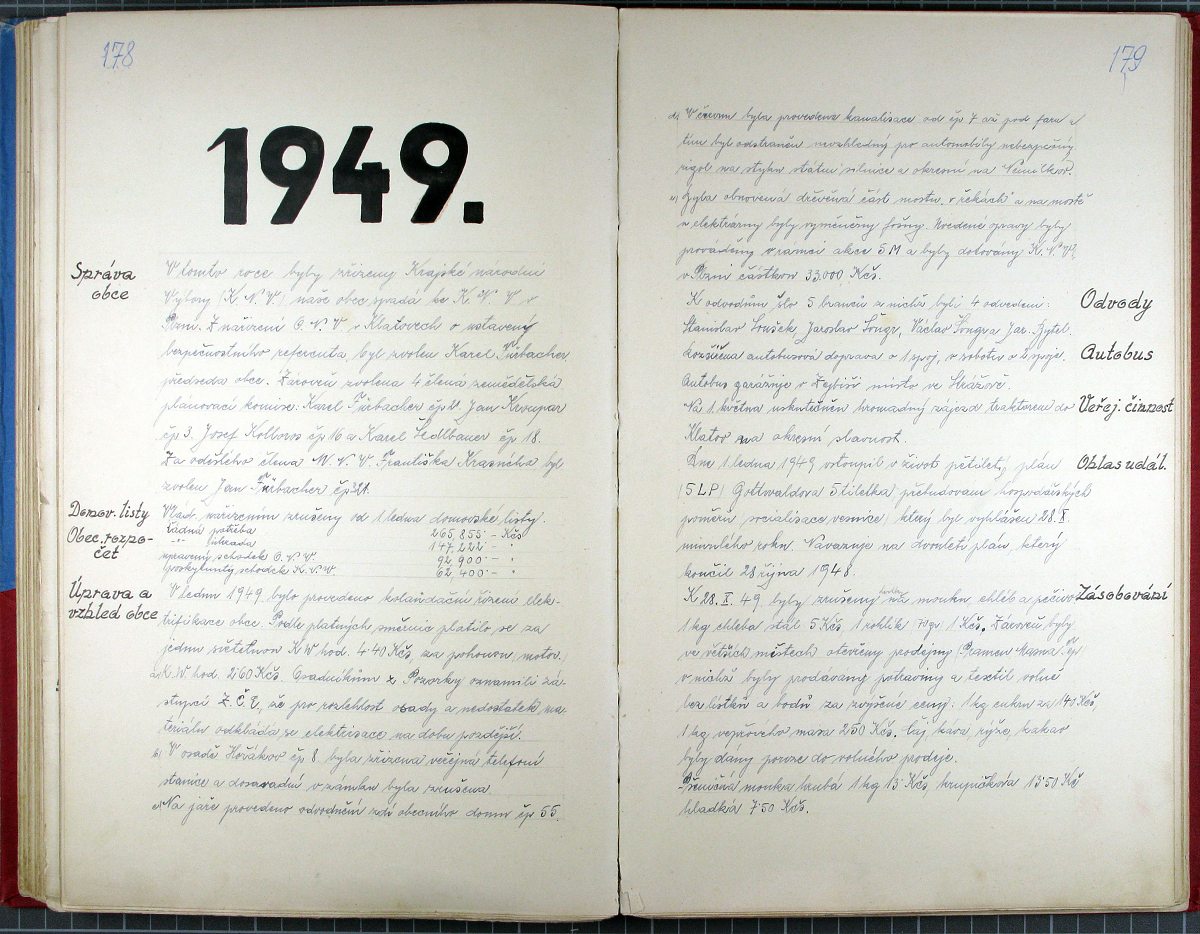 178
1949.
Správa
obce
V tomto roce byly zřízeny Krajské národní
Výbory (K. N. V.) naše obec spadá ke K. N. V. v
Plzni. Z nařízení O.N.V. v Klatovech o ustavení
bezpečnostního referenta, byl zvolen Karel Türbacher
předseda obce. Zároveň zvolena 4 člená zemědělská
plánovací komise: Karel Türbacher Jan
čp 3. Josef Kolloros čp 16 a Karel Sedlbauer čp 18.
Za odešlého člena M. N. V. Františka Krásného byl
zvolen Jan Türbacher
Domov. listy
Vlád. nařízením zrušeny od 1 ledna domovské listy.
Obec. rozpo-
čet
řádná potřeba 265,855·- Kčs
-"- úhrada 147,222·- "
upravený schodek O.N.V. 92,900·- "
poskytnutý schodek K.N.V. 62,400·- "
Úprava a
vzhled obce
V lednu 1949 bylo provedeno kolaudační řízení elek-
trifikace obce. Podle platných směrnic platilo se za
jednu světelnou KW hod. 4·40 Kčs, za pohonou, motor.
K.W. hod. 2·60 Kčs. Osadníkům z Pozorky oznámili zá-
stupci Z.Č.E., že pro rozlehlost osady a nedostatek ma-
teriálu odkládá se elektrisace na dobu pozdější.
b) V osadě čp 8. byla zřízena veřejná telefoní
stanice a dosavadní v zámku byla zrušena.
c) Na jaře provedeno odvodnění zdí obecního domu čp 55.
179
d) V červnu byla provedena kanalisace od čp 7 až pod faru a
tím byl odstraněn nevzhledný pro automobily nebezpečný
rigol na styku státní silnice a okresní na Němčice.
e) Byla obnovená dřevěná část mostu v řekách a na mostě
u elektrárny byly vyměněny fošny. Uvedené opravy byly
prováděny v rámci akce 5M a byly dotovány K.N.V.
v Plzni částkou 33.000 Kčs.
Odvody
K odvodům šlo 5 branců z nichž byli 4 odvedeni:
Stanislav Soušek, Jaroslav Šougr, Václav Šougr a Jar. Bytel.
Autobus
Rozšířena autobusová doprava o 1 spoj, v sobotu o 2 spoje.
Autobus garážuje v Zejbiši místo ve Strážově.
Veřej. činnost
Na 1. května uskutečněn hromadný zájezd traktorem do
Klatov na okresní slavnost.
Ohlas udál.
Dne 1 ledna 1949 vstoupil v život pětiletý plán
(5LP) Gottwaldova 5tiletka, přebudování hospodářských
poměrů socialisace vesnice, který byl vyhlášen 28. X.
minulého roku. Navazuje na dvouletý plán, který
končil 28 října 1948.
Zásobování
K 28. X. 49. byly zrušeny lístky na mouku, chléb a pečivo.
1 kg chleba stál 5 Kčs, 1 rohlík 1 Kčs. Zároveň byly
ve větších městech otevřeny prodejny (Pramen Masna
v nichž byly prodávány potraviny a textil volně
bez lístků a bodů za zvýšené ceny: 1 kg cukru za 140 Kčs,
1 kg vepřového masa 250 Kčs. Čaj, káva, rýže, kakao
byly dány pouze do volného prodeje.
Pšeničná mouka hrubá 1 kg 13 Kčs, krupičková 13·50 Kčs
hladká 7·50 Kčs.